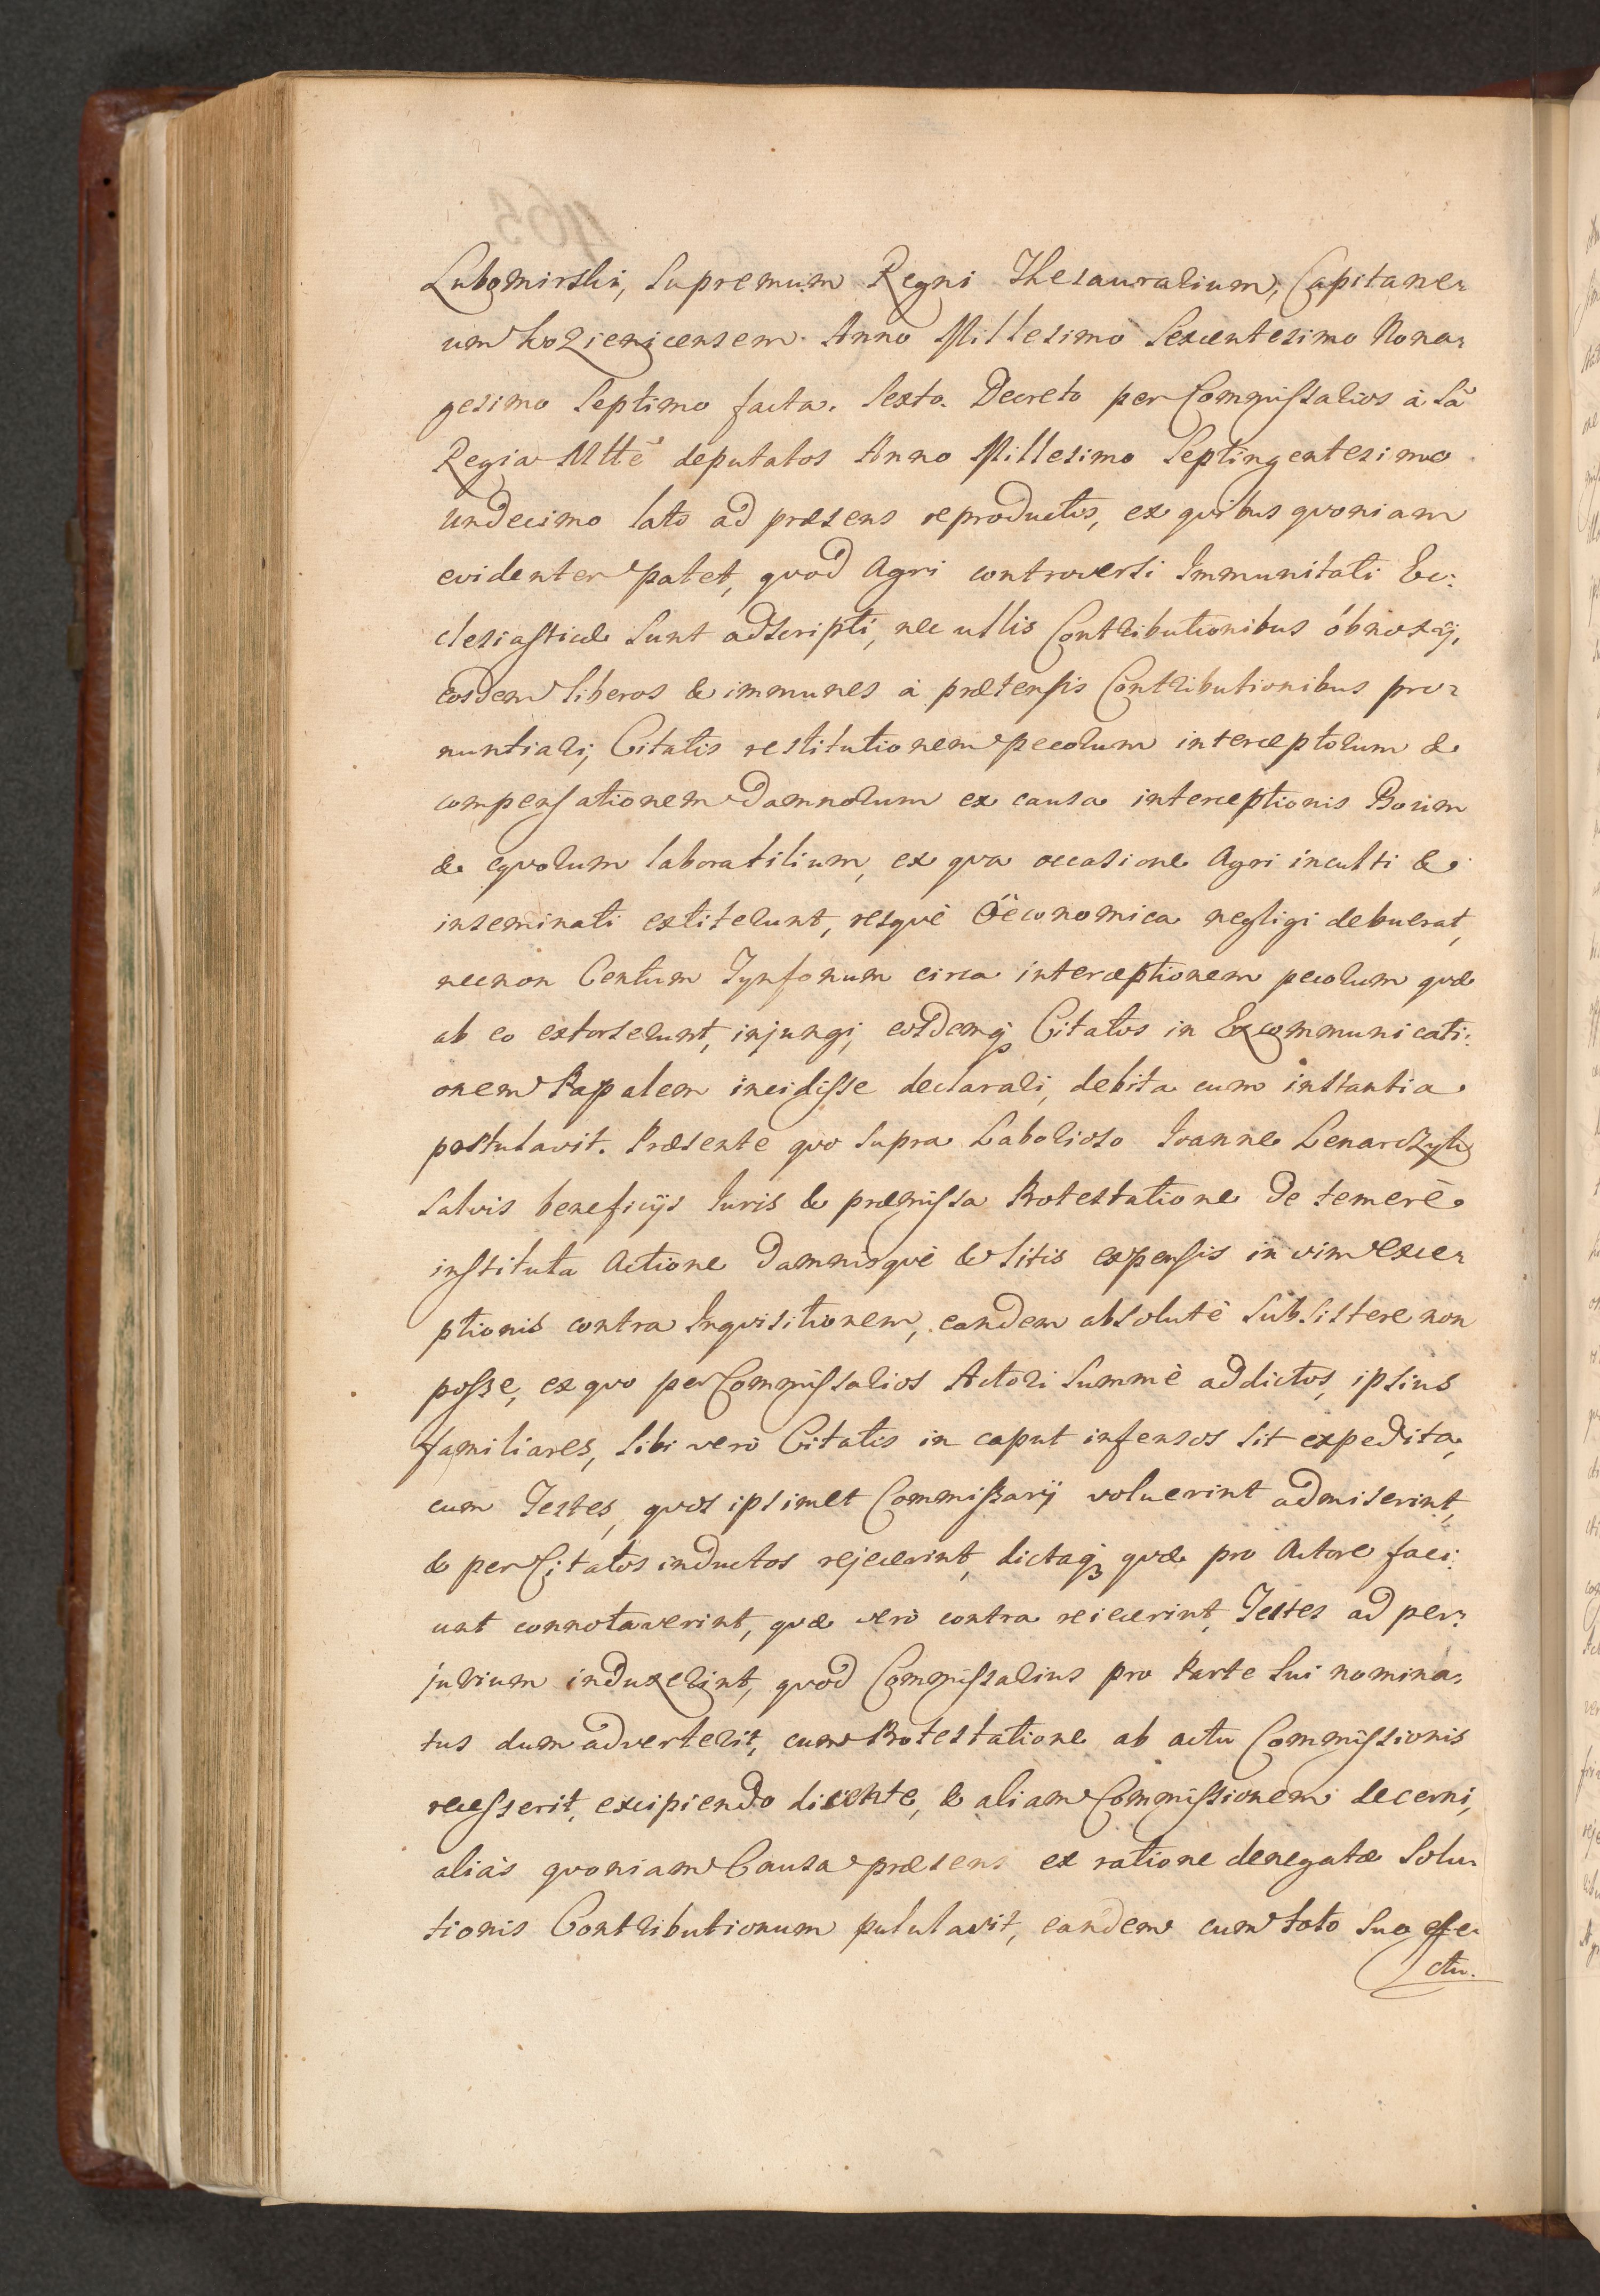 Lubomirski, Supremum Regni Thesaurarium, Capitane-
um Kozienicensem. Anno Millesimo Sexcentesimo Nona-
gesimo Septimo facta. Sexto. Decreto per Commissarios à Sâ
Regia Mtte deputatos Anno Millesimo Septingentesimo
undecimo lato ad præsens reproductis, ex quibus quoniam
evidenter patet, quod Agri controversi Immunitati Ec-
clesiasticæ sunt adscripti, nec ullis Contributionibus óbnoxij,
eosdem liberos & immunes à prætensis Contributionibus pro-
nuntiari, Citatis restitutionem pecorum interceptorum &
compensationem damnorum ex causa interceptionis Boum
& equorum laborabilium, ex qua occasione Agri inculti &
inseminati extiterunt, resquè Oëconomica negligi debuerat,
necnon Centum Tynfonum circa interceptionem pecorum quæ
ab eo extorserunt, injungi, eosdemq3 Citatos in Excommunicati-
onem Papalem incidisse declarari, debita cum instantia
postulavit. Præsente quo supra Laborioso Joanne Lenarczyk
salvis beneficijs Juris & præmissa Protestatione de temerè
instituta Actione damnisquè & litis expensis in vim exce-
ptionis contra Inquisitionem, eandem absolutè subsistere non
posse, ex quo per Commissarios Actori summè addictos, ipsius
familiares, sibi verò Citatis in caput infensos sit expedita,
cum Testes, quos ipsimet Commissarij voluerint admiserint,
& per Citatos inductos rejecerint, dictaq3 quæ pro Actore faci-
unt connotaverint, quæ verò contra reiecerint, Testes ad per-
jurium induxerint, quod Commissarius pro Parte sui nomina-
tus dum adverterit, cum Protestatione ab actu Commissionis
recesserit, excipiendo dicente, & aliam Commissionem decerni,
aliàs quoniam Causa præsens ex ratione denegatæ solu-
tionis Contributionum pululavit, eandem cum toto suo effe-
ctu.